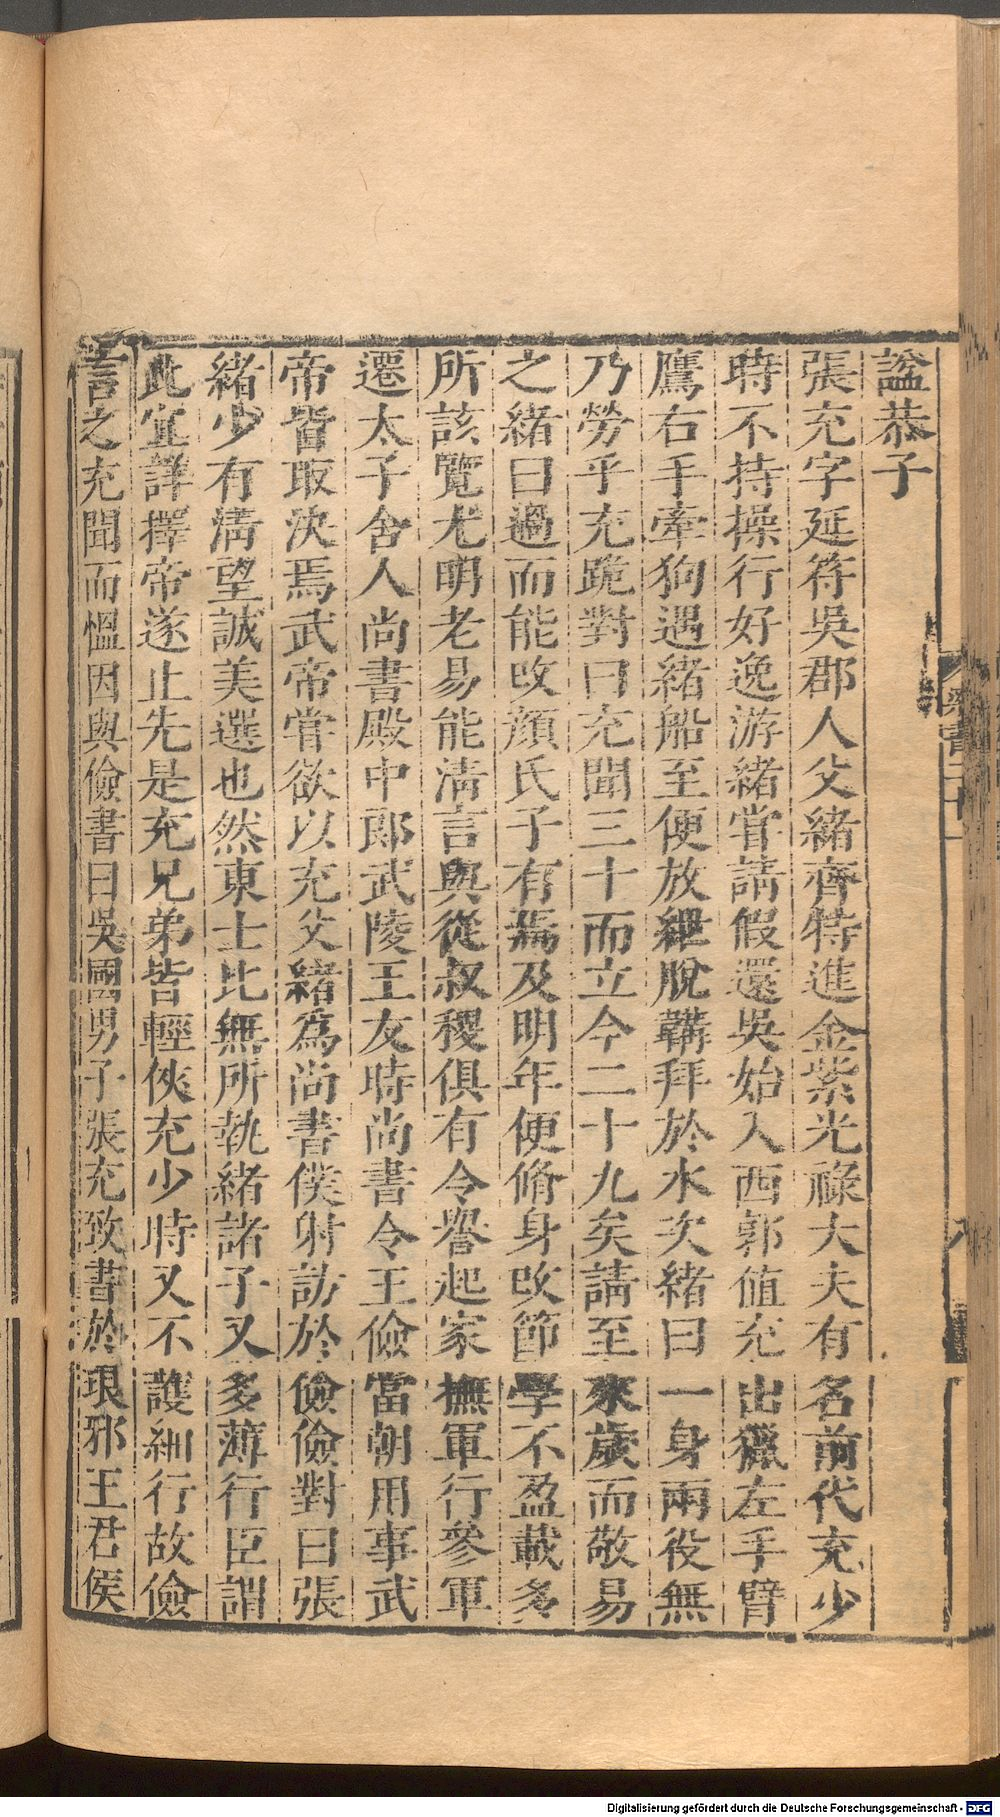 諡恭子
張充字延符吳郡人父緒齊特進金紫光祿大夫有名前代充少
時不持操行好逸游緒嘗請假還吳始入西郭值充出獵左手臂
鷹右手牽狗遇緒船至便放紲脫韝拜於水次緒曰一身兩役無
乃勞乎充跪對曰充聞三十而立今二十九矣請至來歲而敬易
之緒曰過而能改顏氏子有焉及明年便脩身改節學不盈載多
所該覽尤明老易能淸言與從叔稷俱有令譽起家撫軍行參軍
遷太子舍人尚書殿中郎武陵王友時尚書令王儉當朝用事武
帝皆取決焉武帝嘗欲以充父緒爲尚書僕射訪於儉儉對曰張
緒少有淸望誠美選也然東士比無所執緒諸子又多薄行臣謂
此宜詳擇帝遂止先是充兄弟皆輕俠充少時又不護細行故儉
言之充聞而慍因與儉書曰吳國男子張充致書於琅邪王君侯
梁書二十一
八
Digitalisierung gefördert durch die Deutsche Forschungsgemeinschaft - DFG